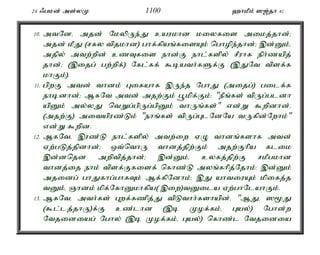 24 ஃபமன் அள்லமு 1100 ஹாமீம் ஸஜ்தா 41
10. அவனே, அதன் மேலிருந்து உயரமான மலைகளை அமைத்தான்;
அதன் மீது (சகல விதமான) பாக்கியங்களையும் பொழிந்தான்; இன்னும்,
அதில் அவற்றின் உணவுகளை நான்கு நாட்களில் சீராக நிர்ணயித்
தான்; (இதைப் பற்றிக்) கேட்கக் கூடியவர்களுக்கு (இதுவே விளக்க
மாகும்)
11. பிறகு அவன் வானம் புகையாக இருந்த போது (அதைப்) படைக்க
நாடினான்; ஆகவே அவன் அதற்கும் பூமிக்கும்: "நீங்கள் விருப்படனா
யினும் அல்லது வெறுப்பிருப்பினும் வாருங்கள்" என்று கூறினான்.
(அதற்கு) அவையிரண்டும் "நாங்கள் விருப்புடனேயே வருகின்றோம்"
என்று கூறின.
12. ஆகவே, இரண்டு நாட்களில் அவற்றை ஏழு வானங்களாக அவன்
ஏற்படுத்தினான்; ஒவ்வொரு வானத்திற்கும் அதற்குரிய கடமை
இன்னதென அறிவித்தான்; இன்னும், உலகத்திற்கு சமீபமான
வானத்தை நாம் விளக்குகளைக் கொண்டு அலங்கரித்தோம்; இன்னும்
அதனைப் பாதுகாப்பாகவும் ஆக்கினோம்; இது யாவரையும் மிகைத்த
வனும், ஞானம் மிக்கோனுமாகிய(இறை)வனுடைய ஏற்பாடேயாகும்.
13. ஆகவே, அவர்கள் புறக்கணித்து விடுவார்களாயின், "ஆது, ஸமூது
(கூட்டத்தாரு)க்கு உண்டான (இடி முழக்கம், புயல்) போன்ற
வேதனையைப் போல (இடி முழக்கம், புயல்) கொண்ட வேதனையை